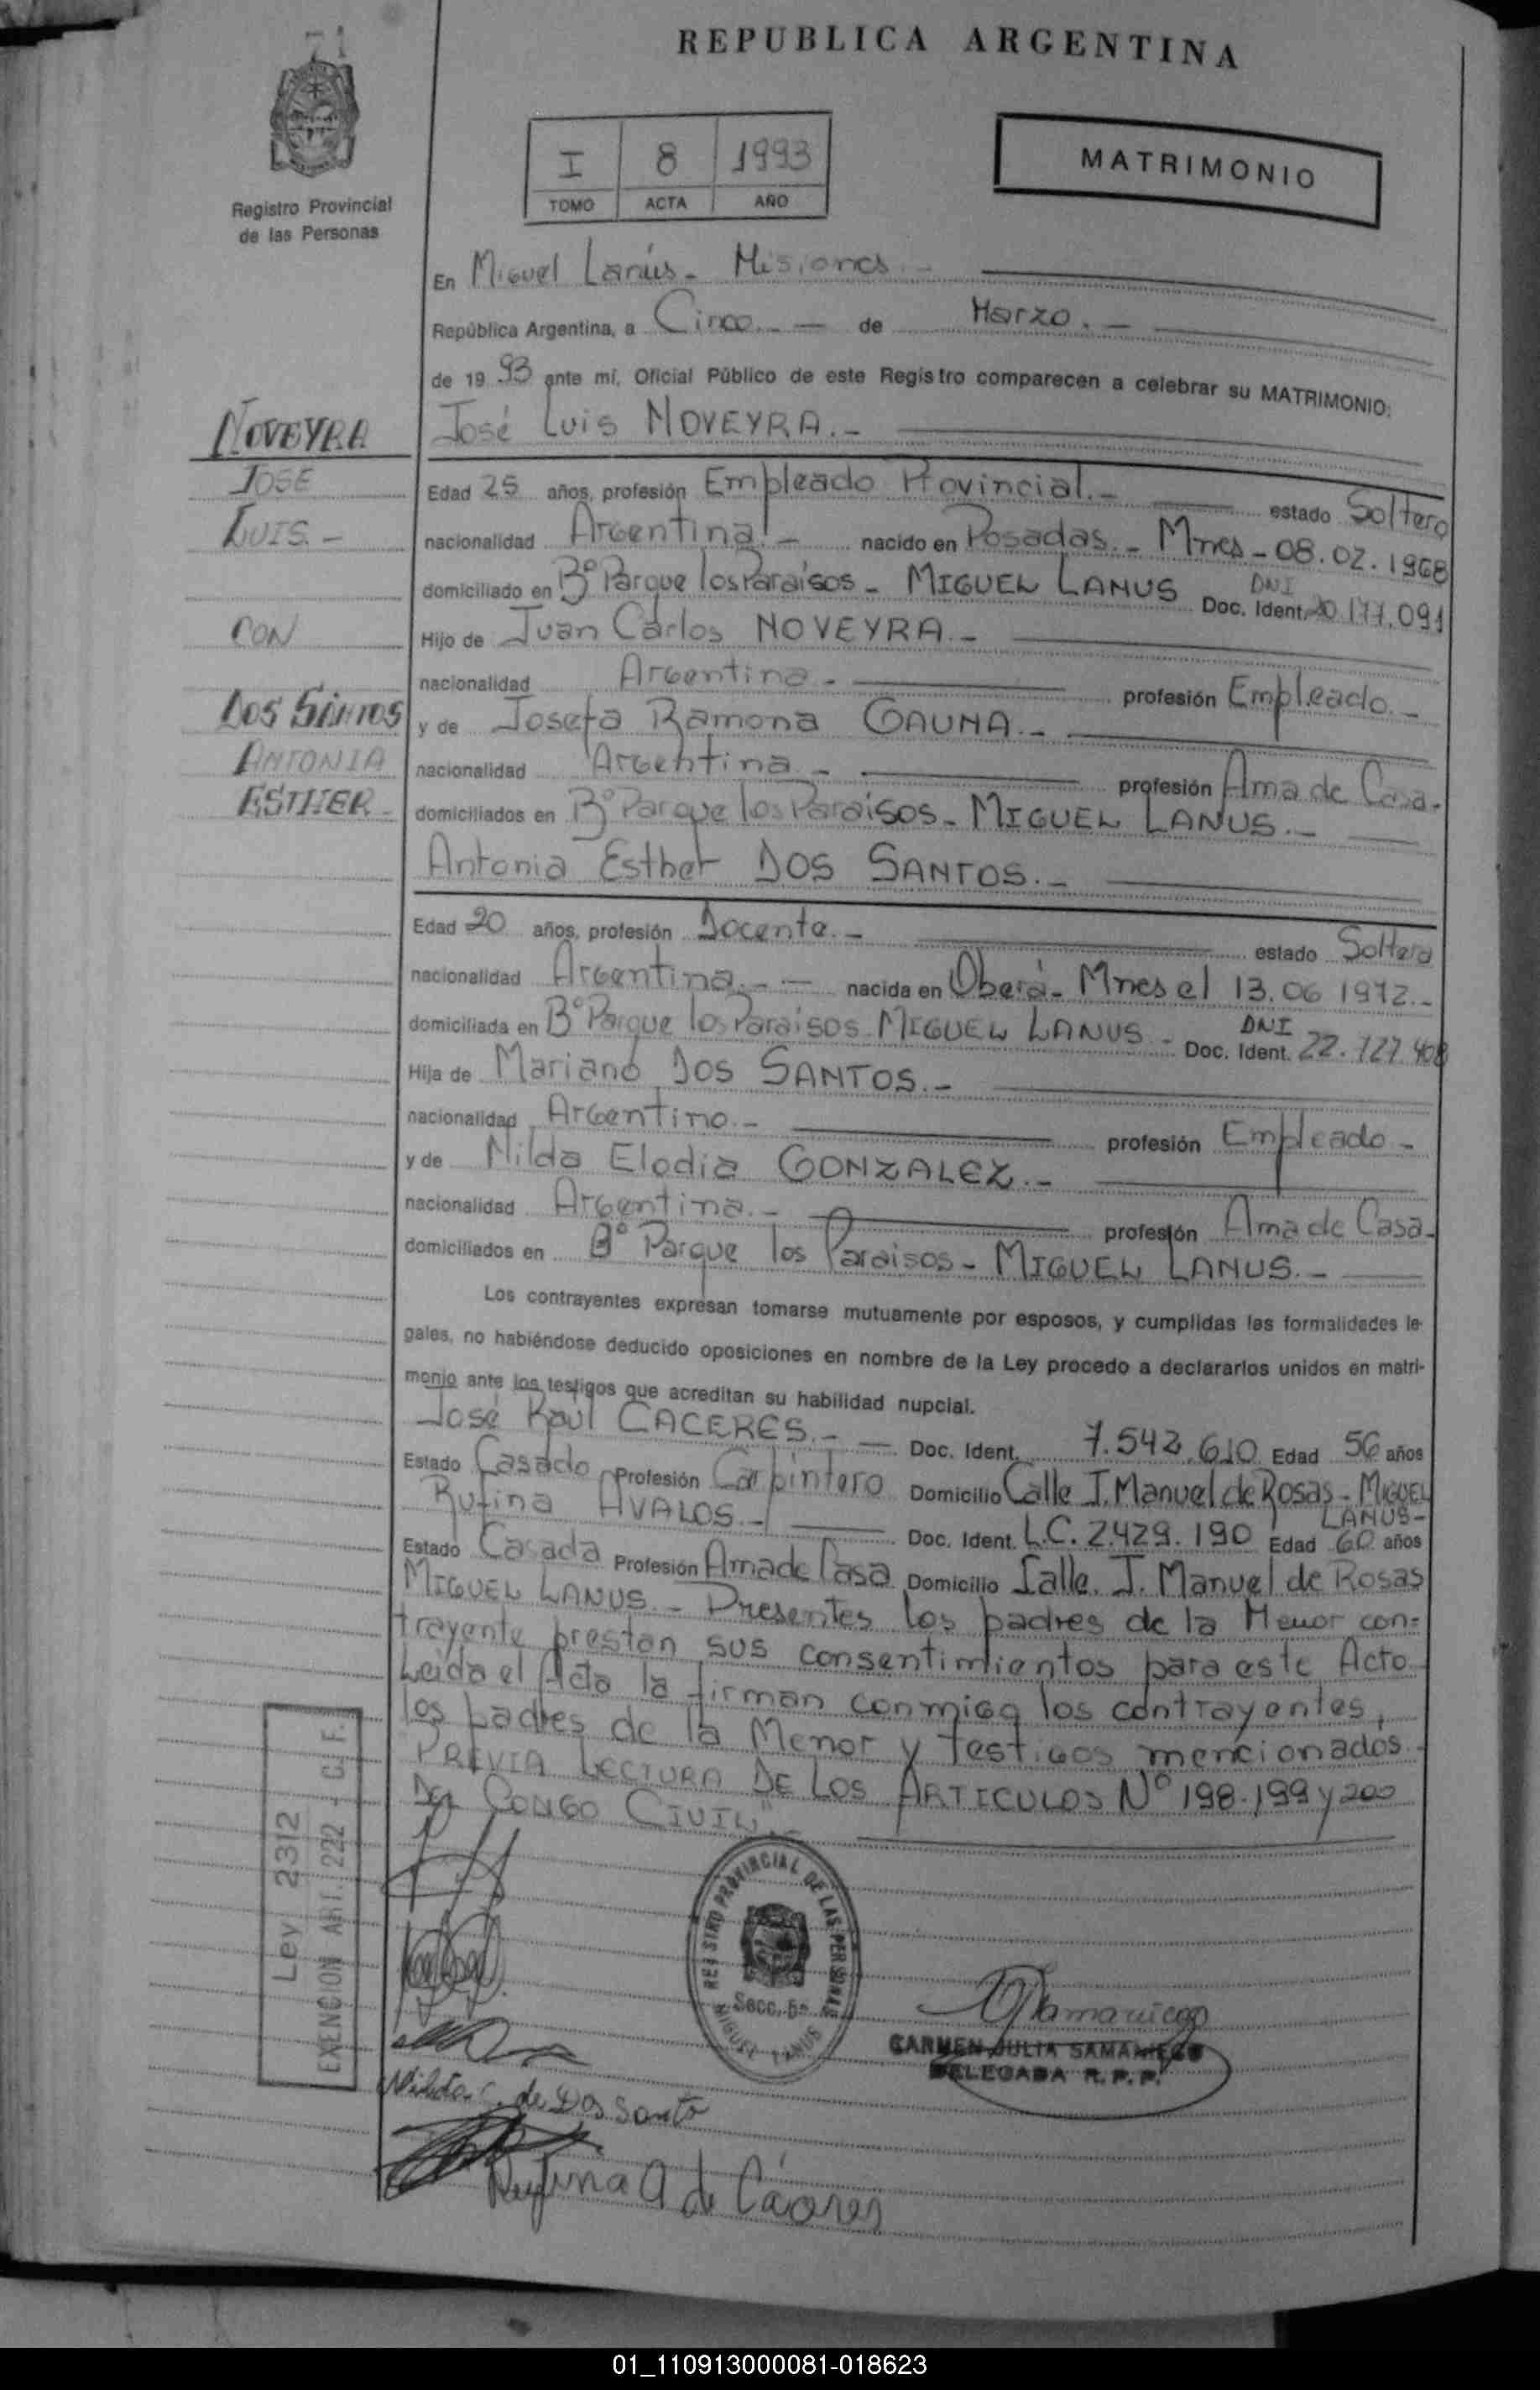 REPUBLICA ARGENTINA
Registro Provincial
de las Personas
I 8 1993
TOMO ACTA AÑO
MATRIMONIO
En Miguel Lanús - Misiones. -
República Argentina, a Cinco. - de Marzo. -
de 19 93 ante mí, Oficial Público de este Registro comparecen a celebrar su MATRIMONIO:
NOVEYRA
JOSE
LUIS. -
CON
DOS SANTOS
ANTONIA
ESTHER -
José Luis NOVEYRA. -
Edad 25 años, profesión Empleado Provincial. - estado Soltero
nacionalidad Argentina. - nacido en Posadas. - Mnes - 08.02.1968
domiciliado en Bº Parque los Paraísos - MIGUEL LANUS DNI Doc. Ident. 20.177.091
Hijo de Juan Carlos NOVEYRA. -
nacionalidad Argentina - profesión Empleado. -
y de Josefa Ramona GAUNA. -
nacionalidad Argentina - profesión Ama de Casa.
domiciliados en Bº Parque los Paraísos - MIGUEL LANUS. -
Antonia Esther DOS SANTOS. -
Edad 20 años, profesión Docente. - estado Soltera
nacionalidad Argentina. - - nacida en Oberá - Mnes el 13.06 1972. -
domiciliada en Bº Parque los Paraisos MIGUEL LANUS - DNI Doc. Ident. 22.727.408
Hija de Mariano DOS SANTOS. -
nacionalidad Argentino. - profesión Empleado -
y de Nilda Elodia GONZALEZ. -
nacionalidad Argentina. - profesión Ama de Casa -
domiciliados en Bº Parque los Paraisos - MIGUEL LANUS. -
Los contrayentes expresan tomarse mutuamente por esposos, y cumplidas las formalidades le-
gales, no habiéndose deducido oposiciones en nombre de la Ley procedo a declararlos unidos en matri-
monio ante los testigos que acreditan su habilidad nupcial.
José Raúl CACERES. - - Doc. Ident. 7.542.610 Edad 56 años
Estado Casado Profesión Carpintero Domicilio Calle J. Manuel de Rosas - MIGUEL
LANUS -
Rufina AVALOS. - Doc. Ident. L.C. 2.429.190 Edad 60 años
Estado Casada Profesión Ama de Casa Domicilio Calle. J. Manuel de Rosas
MIGUEL LANUS. - Presentes los padres de la Menor con=
trayente prestan sus consentimientos para este Acto
Leida el Acta la firman conmigo los contrayentes,
los padres de la Menor y testigos mencionados
PREVIA LECTURA DE LOS ARTICULOS Nº 198.199 y 200
DEL CODIGO CIVIL". -
Ley 2312
EXENCION ART. 222 - C.F.
REGISTRO PROVINCIAL DE LAS PERSONAS
Secc. 5ª
MIGUEL LANUS
Samaniego
CARMEN JULIA SAMANIEGO
DELEGADA R. P. P.
Nilda G. de Dos Santo
Rufina A de Cáceres
01_110913000081-018623